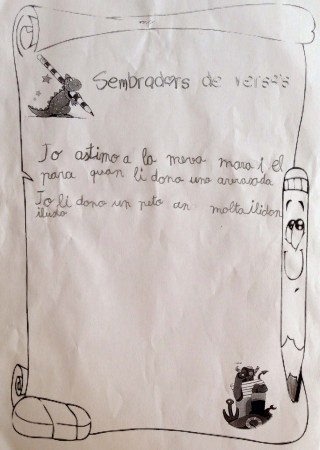 Sembradors de versos
Jo astimo a la meva mara i el
papa quan li dono una abrasada
Jo li dono un peto an molta ilidon
ilusio